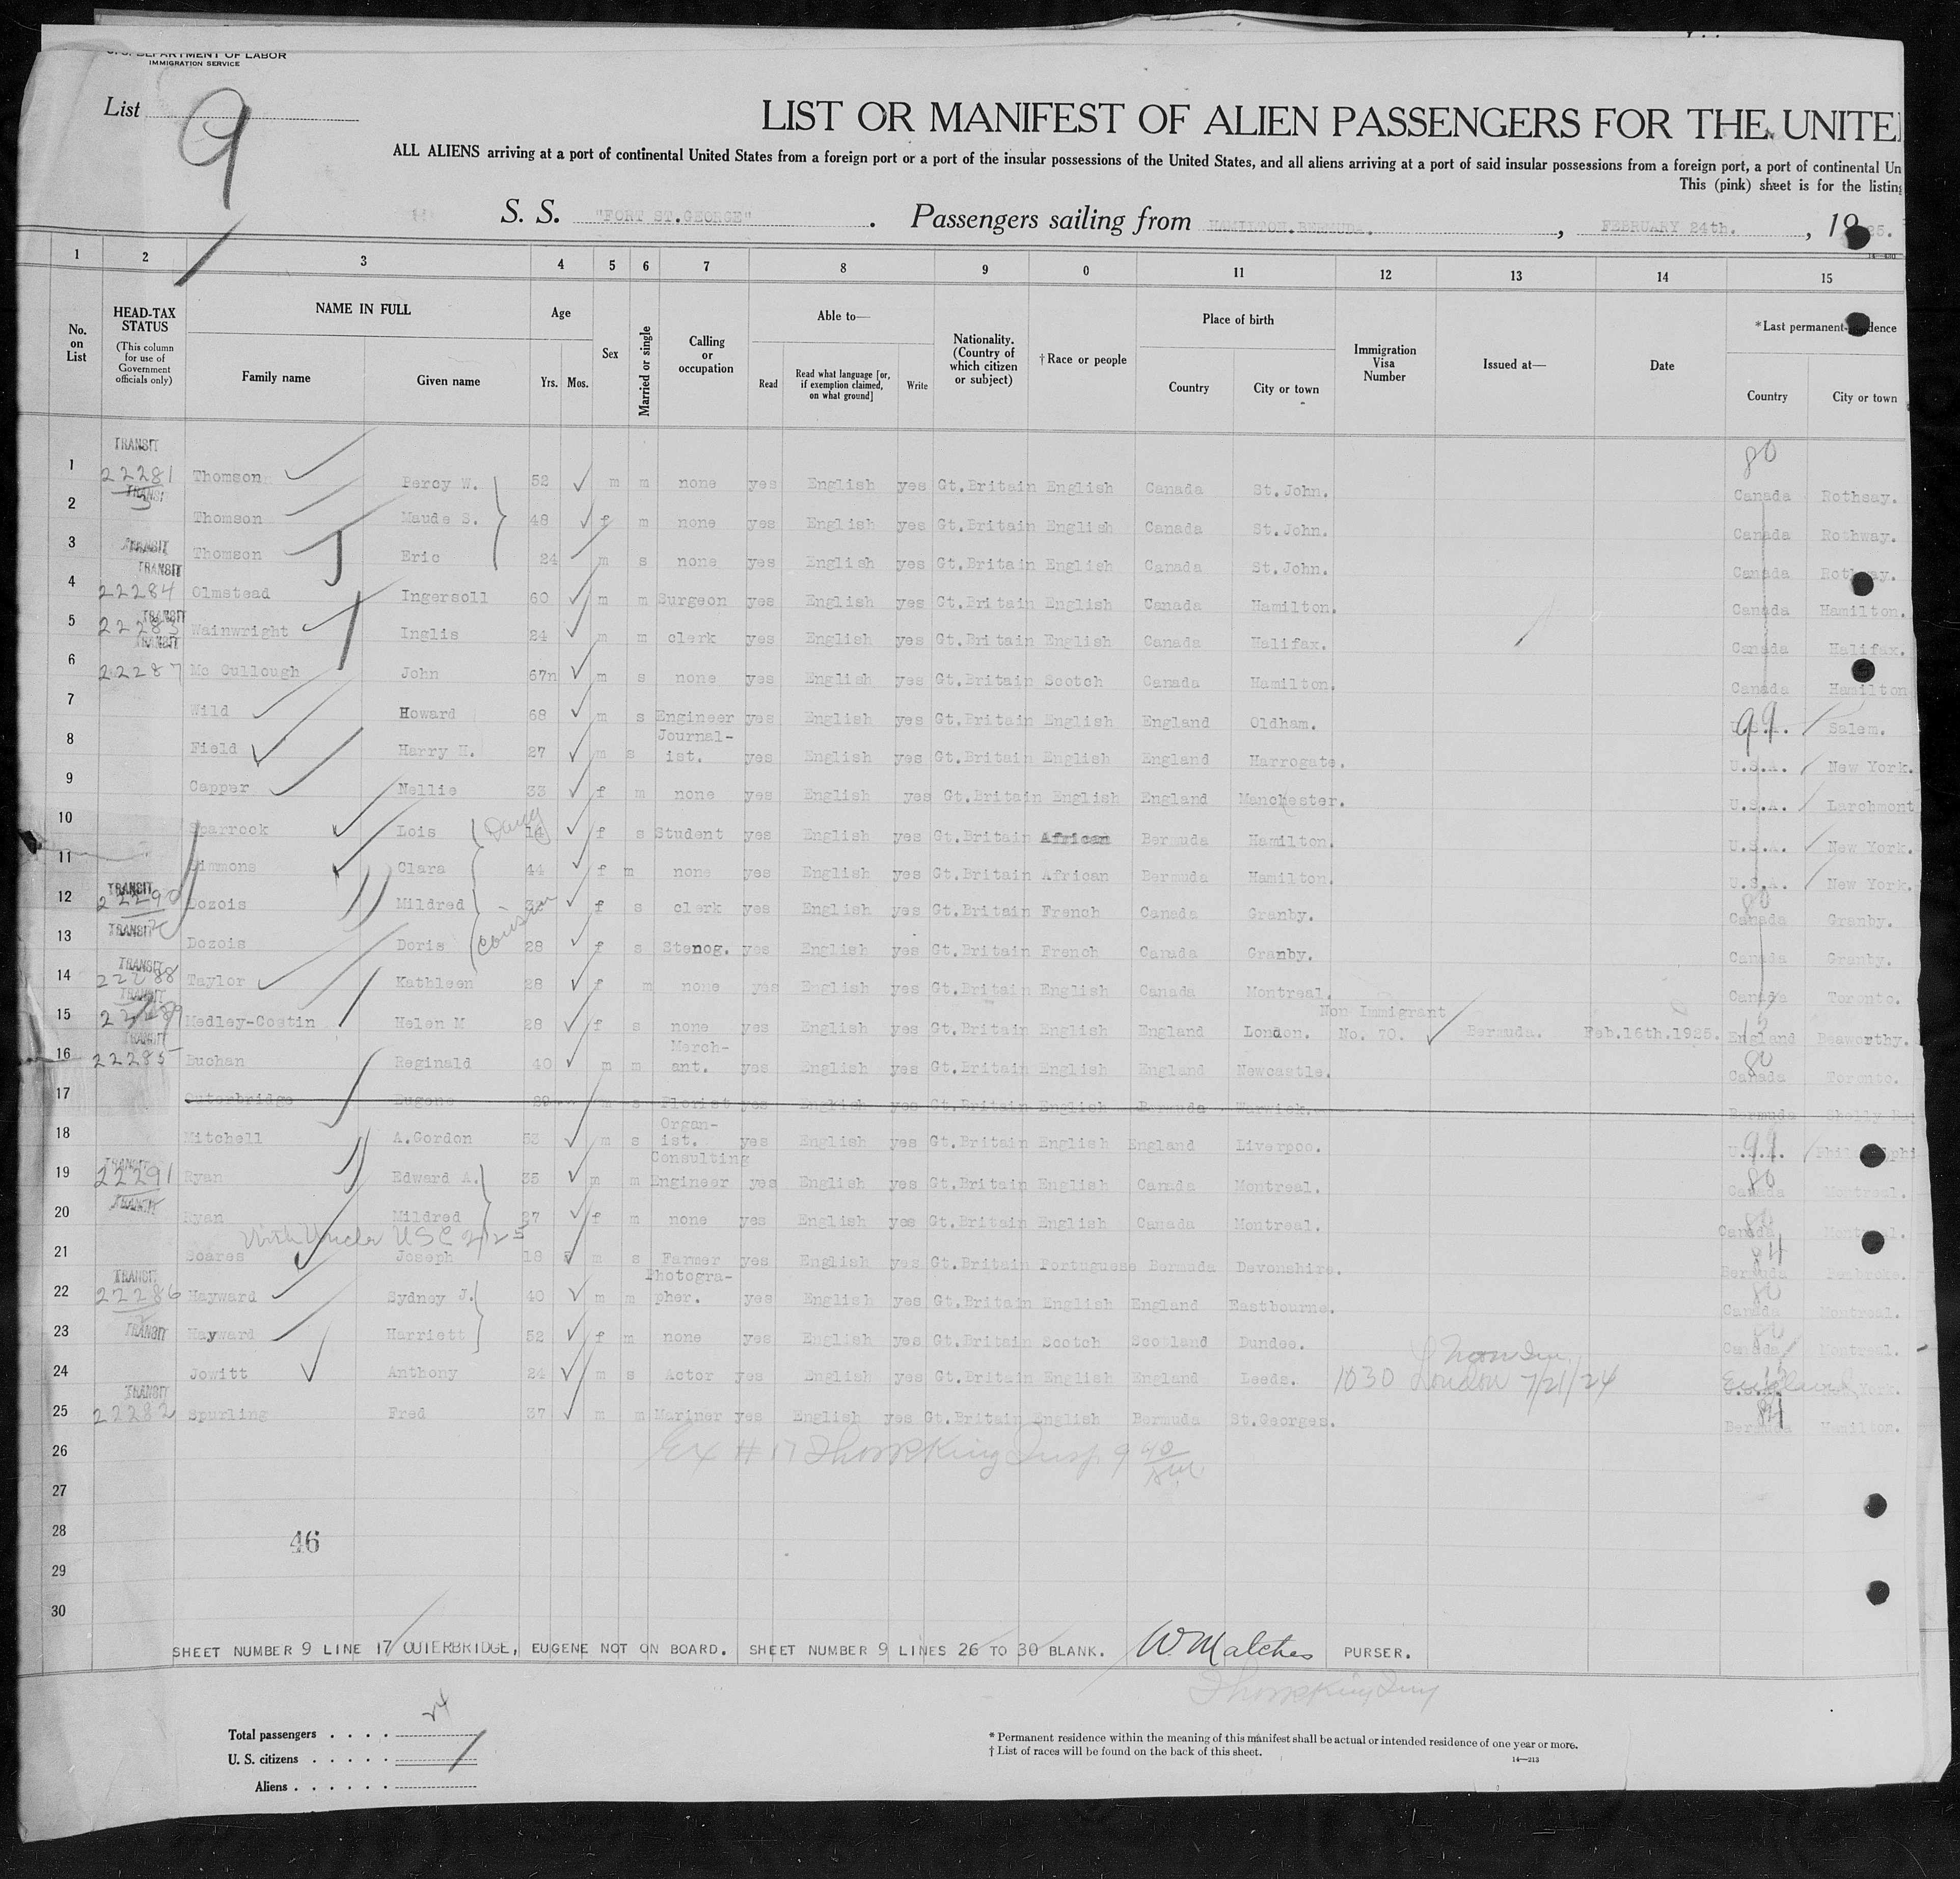 U. S. DEPARTMENT OF LABOR
IMMIGRATION SERVICE
List 9
LIST OR MANIFEST OF ALIEN PASSENGERS FOR THE UNITE
ALL ALIENS arriving at a port of continental United States from a foreign port or a port of the insular possessions of the United States, and all aliens arriving at a port of said insular possessions from a foreign port, a port of continental Un
This (pink) sheet is for the listing
S. S. "FORT ST.GEORGE". Passengers sailing from HAMILTON.BERMUDA. , FEBRUARY 24th. , 1925.
1 2 3 4 5 6 7 8 9 0 11 12 13 14 15
No. on List
HEAD-TAX STATUS (This column for use of Government officials only)
NAME IN FULL Family name Given name
Age Yrs. Mos.
Sex
Married or single
Calling or occupation
Able to— Read Read what language [or, if exemption claimed, on what ground] Write
Nationality. (Country of which citizen or subject)
†Race or people
Place of birth Country City or town
Immigration Visa Number
Issued at—
Date
*Last permanent residence Country City or town
1 TRANSIT 22281 Thomson Percy W. 52 m m none yes English yes Gt.Britain English Canada St.John. 80 Canada Rothsay.
2 TRANSIT Thomson Maude S. 48 f m none yes English yes Gt.Britain English Canada St.John. Canada Rothway.
3 TRANSIT Thomson Eric 24 m s none yes English yes Gt.Britain English Canada St.John. Canada Rothway.
4 TRANSIT 22284 Olmstead Ingersoll 60 m m Surgeon yes English yes Gt.Britain English Canada Hamilton. Canada Hamilton.
5 TRANSIT 22283 Wainwright Inglis 24 m m clerk yes English yes Gt.Britain English Canada Halifax. Canada Halifax.
6 TRANSIT 22287 Mc Cullough John 67n m s none yes English yes Gt.Britain Scotch Canada Hamilton. Canada Hamilton
7 Wild Howard 68 m s Engineer yes English yes Gt.Britain English England Oldham. 99 U.S.A. Salem.
8 Field Harry H. 27 m s Journal-ist. yes English yes Gt.Britain English England Harrogate. U.S.A. New York.
9 Capper Nellie 33 f m none yes English yes Gt.Britain English England Manchester. U.S.A. Larchmont
10 Sparrock Lois Daug 14 f s Student yes English yes Gt.Britain African Bermuda Hamilton. U.S.A. New York.
11 Simmons Clara 44 f m none yes English yes Gt.Britain African Bermuda Hamilton. U.S.A. New York.
12 TRANSIT 22290 Dozois Mildred f s clerk yes English yes Gt.Britain French Canada Granby. 80 Canada Granby.
13 TRANSIT Dozois Doris Cousin 28 f s Stenog. yes English yes Gt.Britain French Canada Granby. Canada Granby.
14 TRANSIT 22288 Taylor Kathleen 28 f m none yes English yes Gt.Britain English Canada Montreal. Canada Toronto.
15 TRANSIT 22289 Medley-Costin Helen M 28 f s none yes English yes Gt.Britain English England London. Non Immigrant No. 70. Bermuda. Feb.16th.1925. England Beaworthy.
16 TRANSIT 22285 Buchan Reginald 40 m m Merch-ant. yes English yes Gt.Britain English England Newcastle. 80 Canada Toronto.
17 Outerbridge Eugene 29 m s Florist yes English yes Gt.Britain English Bermuda Warwick. Bermuda Shelly
18 Mitchell A.Gordon 53 m s Organ-ist. yes English yes Gt.Britain English England Liverpoo. 99 U.S.A. Philadelphi
19 TRANSIT 22291 Ryan Edward A. 35 m m Consulting Engineer yes English yes Gt.Britain English Canada Montreal. 80 Canada Montreal.
20 TRANSIT Ryan Mildred 27 f m none yes English yes Gt.Britain English Canada Montreal. 80 Canada Montreal.
With Uncle USC
21 Soares Joseph 18 m s Farmer yes English yes Gt.Britain Portuguese Bermuda Devonshire. 84 Bermuda Pembroke.
22 TRANSIT 22286 Hayward Sydney J. 40 m m Photogra-pher. yes English yes Gt.Britain English England Eastbourne. 80 Canada Montreal.
23 TRANSIT Hayward Harriett 52 f m none yes English yes Gt.Britain Scotch Scotland Dundee. 80 Canada Montreal.
24 Jowitt Anthony 24 m s Actor yes English yes Gt.Britain English England Leeds. 1030 London 7/21/24 England York.
25 TRANSIT 22282 Spurling Fred 37 m m Mariner yes English yes Gt.Britain English Bermuda St.Georges. 84 Bermuda Hamilton.
26 Ex # 17 Insp
27
28 46
29
30
SHEET NUMBER 9 LINE 17 OUTERBRIDGE, EUGENE NOT ON BOARD. SHEET NUMBER 9 LINES 26 TO 30 BLANK. W. Matches PURSER.
Total passengers . . . . 24
U. S. citizens . . . . .
Aliens . . . . . .
* Permanent residence within the meaning of this manifest shall be actual or intended residence of one year or more.
† List of races will be found on the back of this sheet. 14—213